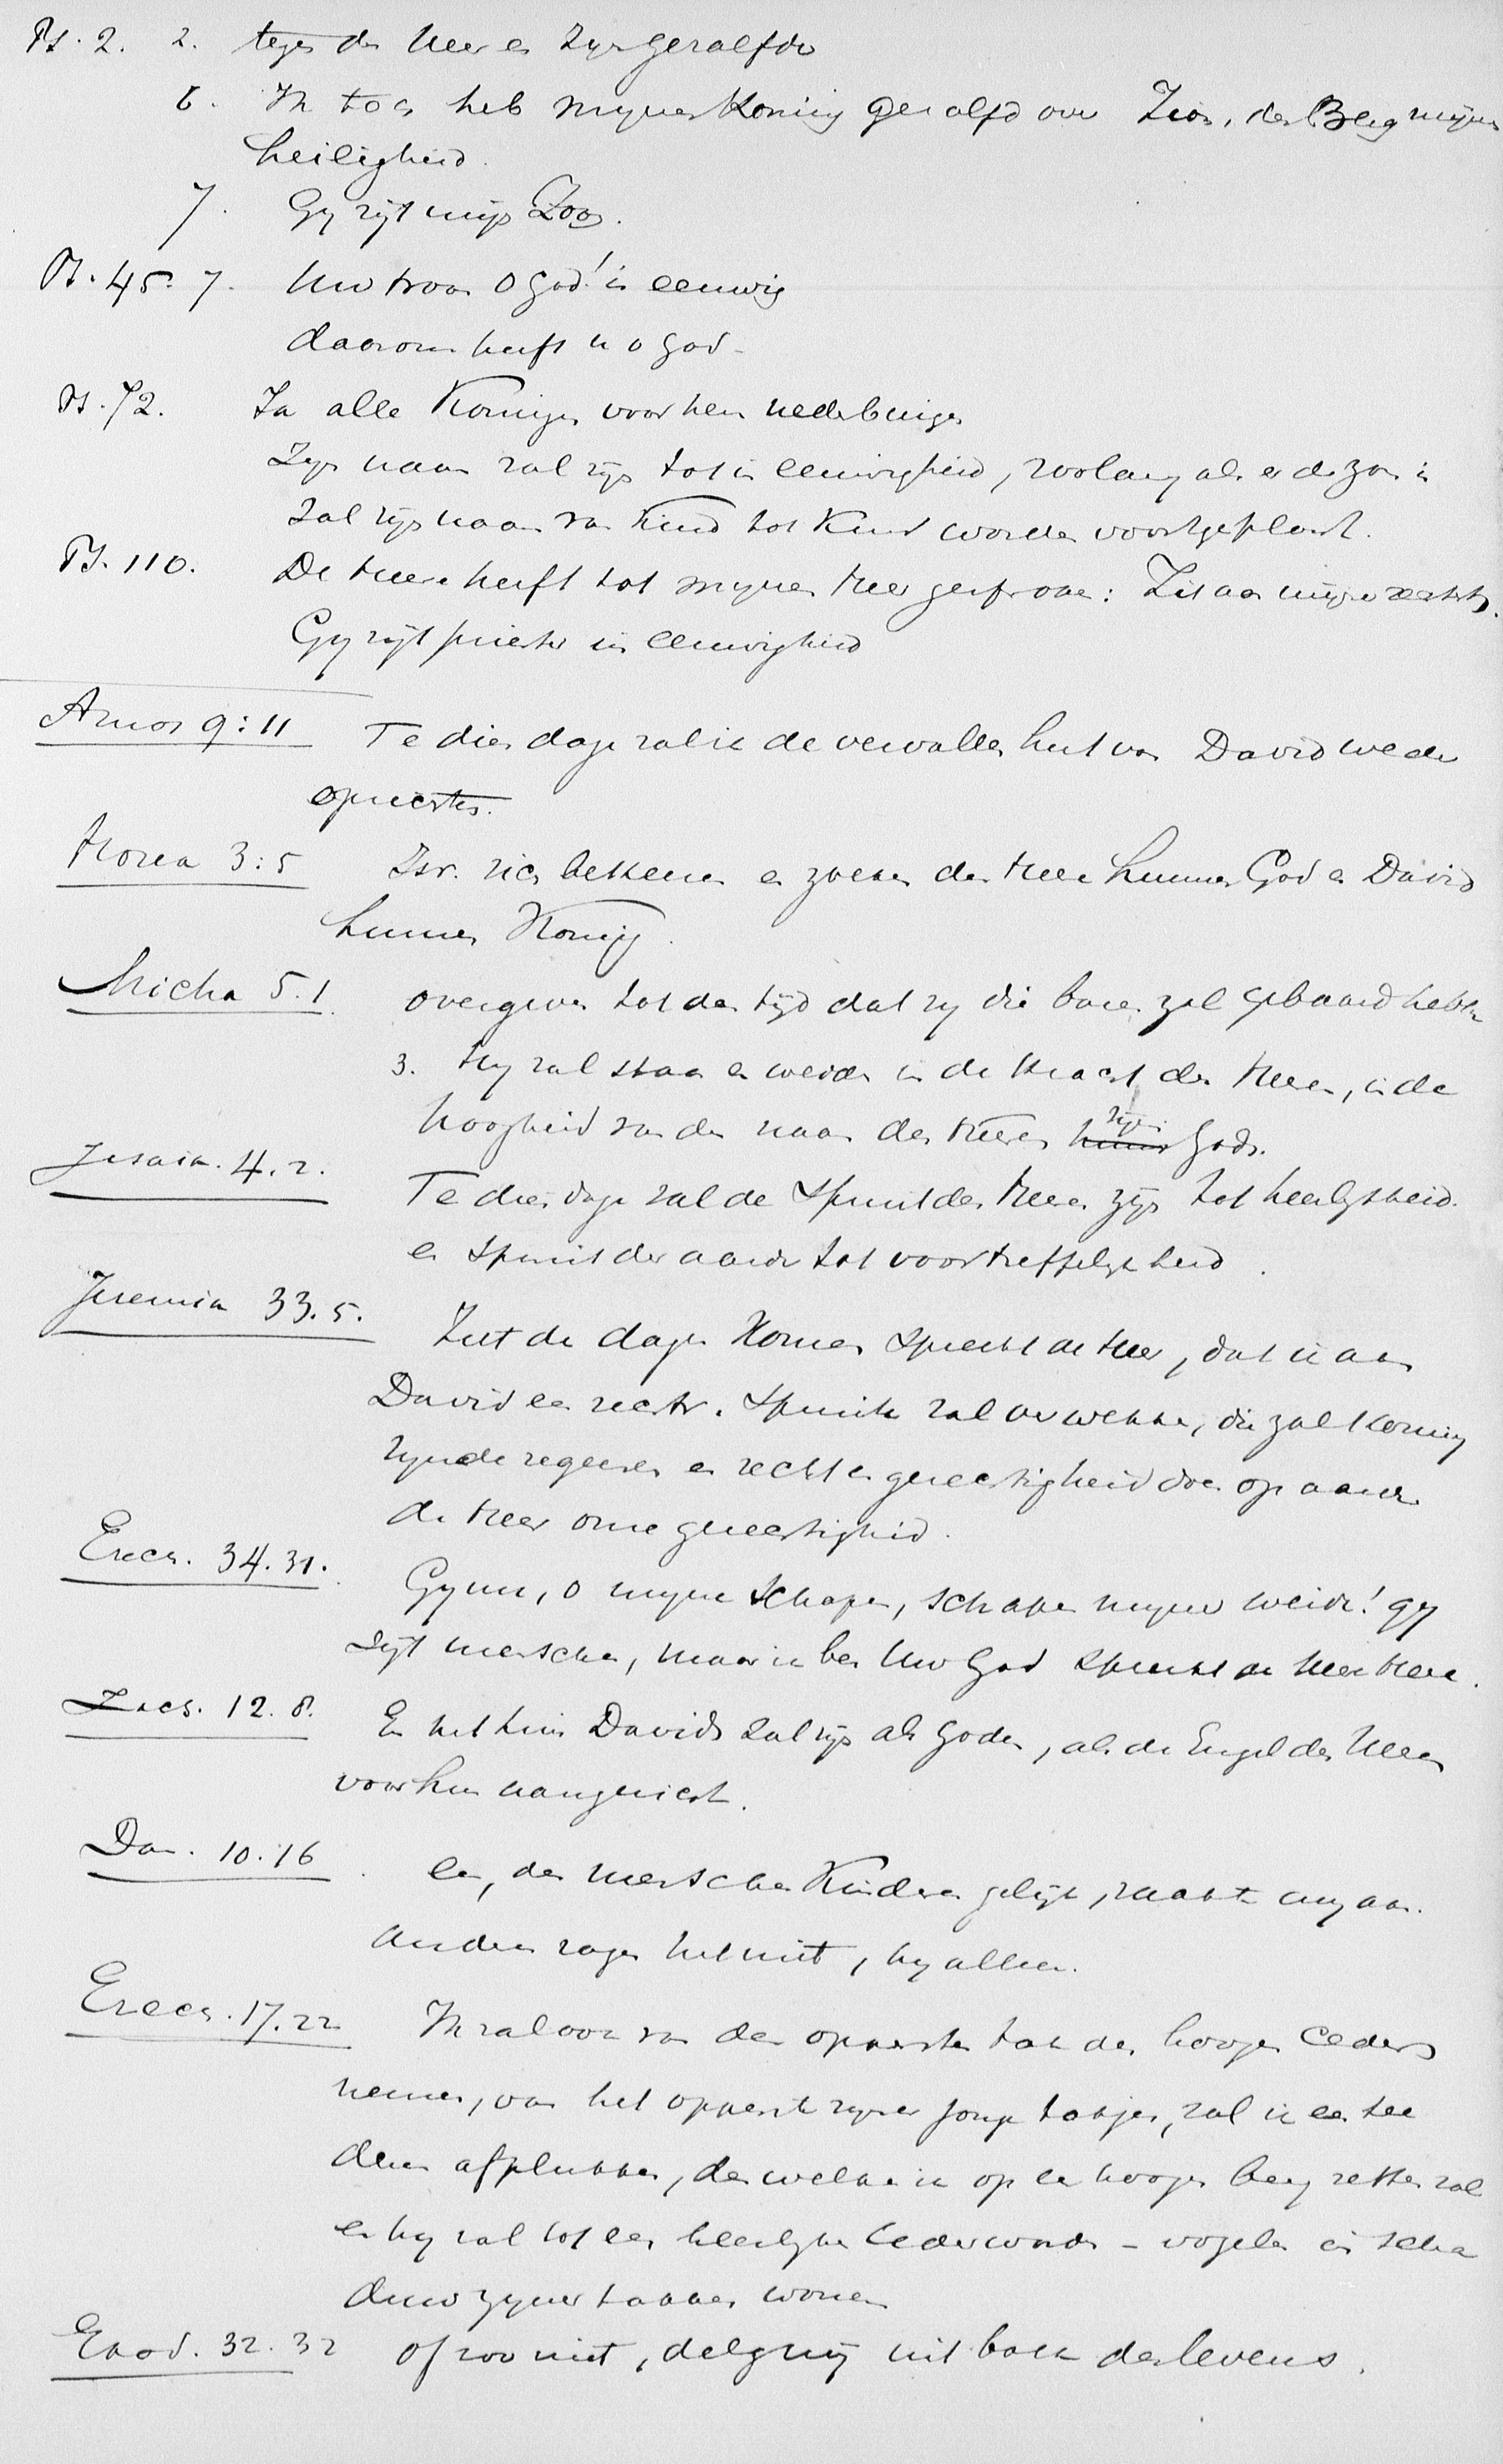 Ps. 2. 2. tegen den Heer en Zijn gezalfde
6. Ik toch heb mynen Koning gezalfd over Zion, den Berg mijner
heiligheid.
7. Gy zijt mijn Zoon.
Ps. 45. 7. Uw troon o God! is eeuwig
daarom heeft u o God -
Ps. 72. Ja alle Koningen voor hem nederbuigen
Zijn naam zal zijn tot in eeuwigheid, zoolang als er de zon is
zal zijn naam van Kind tot Kind worden voortgeplant.
Ps. 110. De Heere heeft tot mynen Heer gesproken: Zit aan mijne rechterh.
Gy zijt priester in eeuwigheid
Amos 9:11 Te dien dage zal ik de vervallen hut van David weder
oprichten.
Hosea 3:5 Isr. zich bekeeren en zoeken den Heere hunnen God en David
hunnen Koning.
Micha 5.1 overgeven tot den tijd dat zy die baren zal gebaard hebben
3. Hy zal staan en weiden in de kracht des Heeren, in de
hoogheid van den naam des Heeren zijns Gods.
Jesaia. 4.2. Te dien dage zal de Spruit des Heeren zijn tot heerlykheid
en Spruit der aarde tot voortreffelykheid.
Jeremia 33.5. Ziet de dagen komen spreekt de Heer, dat ik aan
David een rechtv. Spruite zal verwekken, die zal Koning
zynde regeeren en recht en gerechtigheid doen op aarde
de Heer onze gerechtigheid.
Ezech. 34.31. Gy nu, o myne schapen, schapen myner weide! gy
zijt menschen, maar ik ben Uw God spreekt de Heer Heere.
Zach. 12.8. En het huis Davids zal zijn als Goden, als de Engel des Heeren
voor hun aangezicht.
Dan. 10.16 een, den menschen Kinderen gelijk, raakte my aan.
anderen zagen het niet, hy alleen.
Ezech. 17.22 Ik zal ook van den oppersten tak des hoogen Ceders
nemen, van het opperste zyner jonge takjes, zal ik een tee
deren afplukken, den welken ik op een hoogen berg zetten zal
en hy zal tot een heerlyken Ceder worden - vogelen in scha
duw zyner takken wonen
Exod. 32.32 of zoo niet, delg my uit boek des levens.